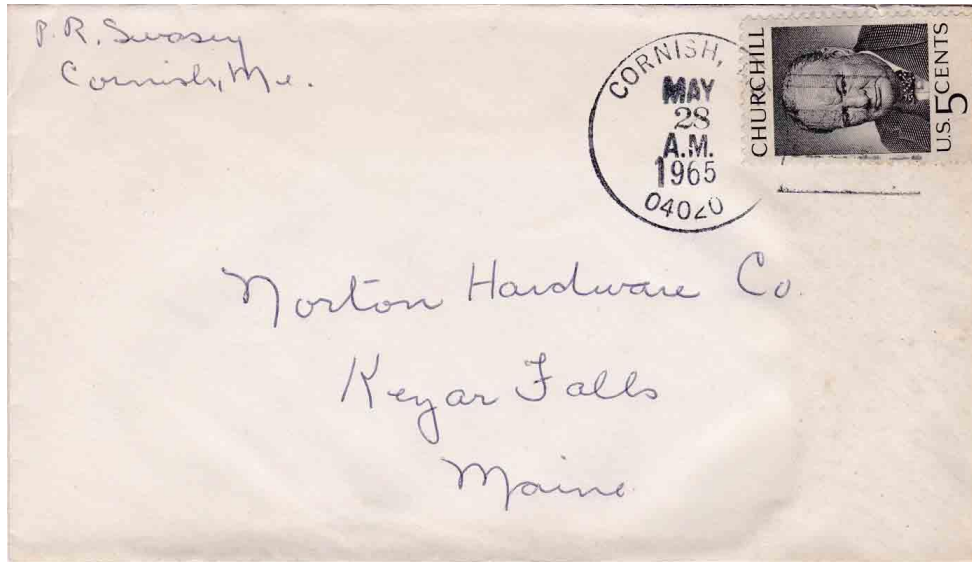 P. R. Swasey
Cornish, Me.
CORNISH,
MAY
28
A.M.
1965
04020
CHURCHILL
U.S. 5 CENTS
Norton Hardware Co.
Kezar Falls
Maine